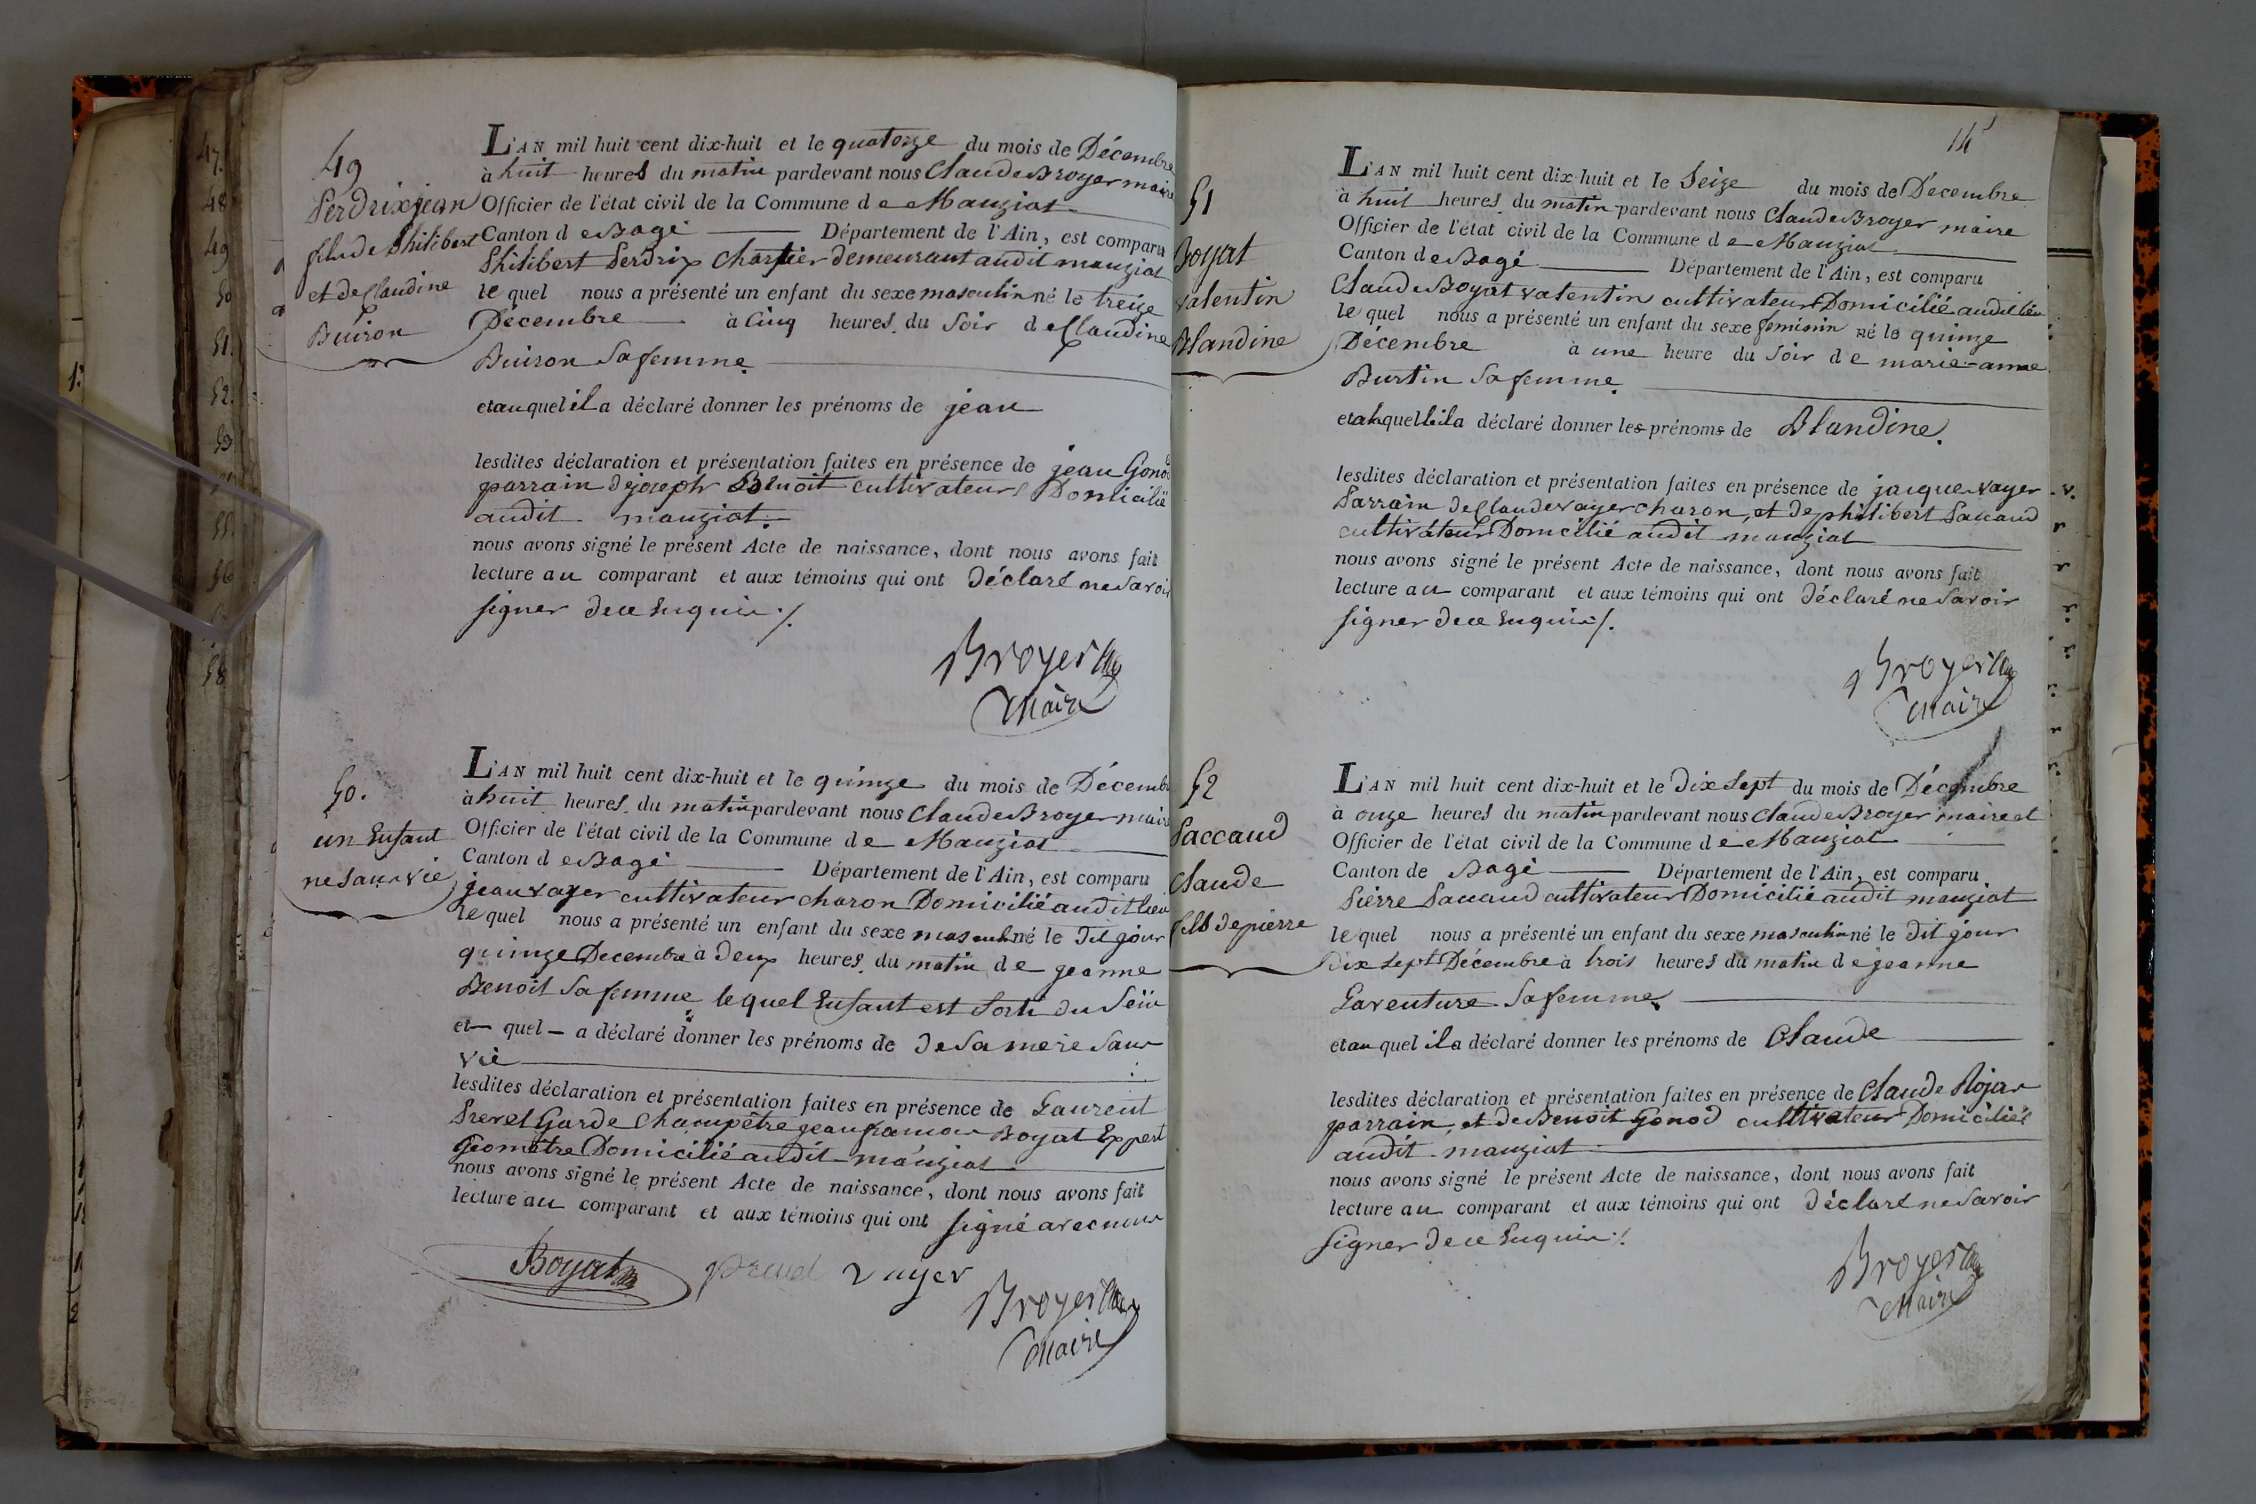 49
Perdrix jean
fils de Philibert
et de Claudine
Buiron
L'AN mil huit cent dix-huit et le quatorze du mois de Décembre
à huit heures du matin pardevant nous Claude Broyer maire
Officier de l'état civil de la Commune de Manziat
Canton de Bagé Département de l'Ain, est comparu
Philibert Perdrix Chartier demeurant audit manziat
lequel nous a présenté un enfant du sexe masculin né le treize
Décembre à Cinq heures du Soir de Claudine
Buiron Sa femme
et auquel il a déclaré donner les prénoms de jean
lesdites déclaration et présentation faites en présence de jean Gonod
parrain de joseph Benoit cultivateurs Domicilié
audit manziat
nous avons signé le présent Acte de naissance, dont nous avons fait
lecture au comparant et aux témoins qui ont Déclaré ne Savoir
signer de ce Enquis ./.
Broyer
Maire
50.
un Enfant
né Sans vie
L'AN mil huit cent dix-huit et le quinze du mois de Décembre
à huit heures du matin pardevant nous Claude Broyer maire
Officier de l'état civil de la Commune de Manziat
Canton de Bagé Département de l'Ain, est comparu
jean vayer cultivateur charon Domicilié audit lieu
lequel nous a présenté un enfant du sexe masculin né le dit jour
quinze Decembre à deux heures du matin de jeanne
Benoit Sa femme lequel Enfant est Sorti du Sein
et quel a déclaré donner les prénoms de de Sa mere Sans
vie
lesdites déclaration et présentation faites en présence de Laurent
Prevel Garde Champêtre jean francois Boyat Expert
Géomètre Domicilié audit manziat
nous avons signé le présent Acte de naissance, dont nous avons fait
lecture au comparant et aux témoins qui ont signé avec nous
Boyat Prevel vayer
Broyer
Maire
14
51
Boyat
valentin
Blandine
L'AN mil huit cent dix-huit et le Seize du mois de Décembre
à huit heures du matin pardevant nous Claude Broyer maire
Officier de l'état civil de la Commune de Manziat
Canton de Bagé Département de l'Ain, est comparu
Claude Boyat valentin cultivateur Domicilié audit lieu
lequel nous a présenté un enfant du sexe feminin né le quinze
Décembre à une heure du Soir de marie-anne
Burtin Sa femme
et à laquelle il a déclaré donner les prénoms de Blandine.
lesdites déclaration et présentation faites en présence de jacque vayer
Parrain de Claude vayer charon, et de philibert Paccaud
cultivateur Domicilié audit manziat
nous avons signé le présent Acte de naissance, dont nous avons fait
lecture au comparant et aux témoins qui ont déclaré ne Savoir
signer de ce Enquis ./.
Broyer
Maire
52
Paccaud
Claude
fils de pierre
L'AN mil huit cent dix-huit et le Dix Sept du mois de Décembre
à onze heures du matin pardevant nous Claude Broyer maire et
Officier de l'état civil de la Commune de Manziat
Canton de Bagé Département de l'Ain, est comparu
Pierre Paccaud cultivateur Domicilié audit manziat
lequel nous a présenté un enfant du sexe masculin né le dit jour
Dix Sept Décembre à trois heures du matin de jeanne
Laventure Sa femme
et auquel il a déclaré donner les prénoms de Claude
lesdites déclaration et présentation faites en présence de Claude
parrain, et de Benoit Gonod cultivateur Domiciliés
audit manziat
nous avons signé le présent Acte de naissance, dont nous avons fait
lecture au comparant et aux témoins qui ont déclaré ne Savoir
signer de ce Enquis ./.
Broyer
Maire